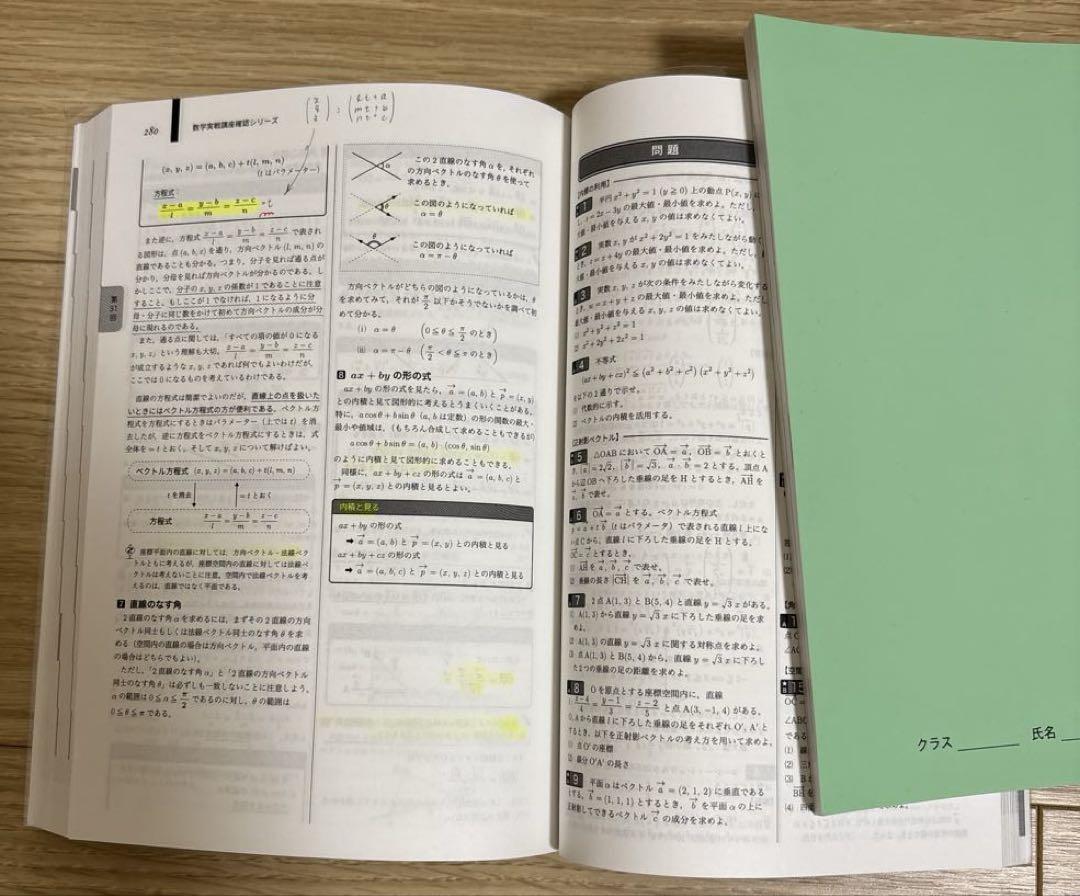 280
数学実戦講座確認シリーズ
(x, y, z) = (a, b, c) + t(l, m, n)
(t はパラメーター)
方程式:
(x−a)/l = (y−b)/m = (z−c)/n
また逆に，方程式 (x−a)/l = (y−b)/m = (z−c)/n で表され
る図形は，点(a, b, c) を通り，方向ベクトル(l, m, n) の
直線であることも分かる。つまり，分子を見れば通る点が
分かり，分母を見れば方向ベクトルが分かるのである。し
かしここで，分子の x, y, z の係数が1であることに注意
すること。もしここが1でなければ，1になるように分
母・分子に同じ数をかけて初めて方向ベクトルの成分が分
母に現れるのである。
また，通る点に関しては，「すべての項の値が0になる
x, y, z」という理解も大切。(x−a)/l = (y−b)/m = (z−c)/n
が成立するような x, y, z であれば何でもよいわけだが，
ここでは0になるものを考えているわけである。
直線の方程式は簡潔でよいのだが，直線上の点を扱いた
いときにはベクトル方程式の方が便利である。ベクトル方
程式を方程式にするときはパラメーター (上では t) を消
去したが，逆に方程式をベクトル方程式にするときは，式
全体を = t とおく。そして x, y, z について解けばよい。
ベクトル方程式 (x, y, z) = (a, b, c) + t(l, m, n)
t を消去
= t とおく
方程式 (x−a)/l = (y−b)/m = (z−c)/n
座標平面内の直線に対しては，方向ベクトル・法線ベク
トルともに考えるが，座標空間内の直線に対しては法線ベ
クトルは考えないことに注意。空間内で法線ベクトルを考
えるのは，直線ではなく平面である。
7 直線のなす角
2直線のなす角 α を求めるには，まずその2直線の方向
ベクトル同士もしくは法線ベクトル同士のなす角 θ を求
める (空間内の直線の場合は方向ベクトル，平面内の直線
の場合はどちらでもよい)。
ただし，「2直線のなす角 α」と「2直線の方向ベクトル
同士のなす角 θ」は必ずしも一致しないことに注意しよう。
α の範囲は 0 ≦ α ≦ π/2 であるのに対し，θ の範囲は
0 ≦ θ ≦ π である。
第31回
この2直線のなす角 α を，それぞれ
の方向ベクトルのなす角 θ を使って
求めるとき，
この図のようになっていれば
α = θ
この図のようになっていれば
α = π − θ
方向ベクトルがどちらの図のようになっているかは，θ
を求めてみて，それが π/2 以下かそうでないかを調べて初
めて分かる。
(i) α = θ (0 ≦ θ ≦ π/2 のとき)
(ii) α = π − θ (π/2 < θ ≦ π のとき)
8 ax + by の形の式
ax + by の形の式を見たら，a→ = (a, b) と p→ = (x, y)
との内積と見て図形的に考えるとうまくいくことがある。
特に，a cos θ + b sin θ (a, b は定数) の形の関数の最大・
最小や値域は，(もちろん合成して求めることもできるが)
a cos θ + b sin θ = (a, b)・(cos θ, sin θ)
のように内積と見て図形的に求めることもできる。
同様に，ax + by + cz の形の式は a→ = (a, b, c) と
p→ = (x, y, z) との内積と見るとよい。
内積と見る
ax + by の形の式
➡ a→ = (a, b) と p→ = (x, y) との内積と見る
ax + by + cz の形の式
➡ a→ = (a, b, c) と p→ = (x, y, z) との内積と見る
問題
【内積の利用】
1 半円 x² + y² = 1 (y ≧ 0) 上の動点 P(x, y) に
z = 2x − 3y の最大値・最小値を求めよ。ただし，
値・最小値を与える x, y の値は求めなくてよい。
2 実数 x, y が x² + 2y² = 1 をみたしながら動く
き，z = x + 4y の最大値・最小値を求めよ。ただし，
大値・最小値を与える x, y の値は求めなくてよい。
3 実数 x, y, z が次の条件をみたしながら変化する
き，u = x + y + z の最大値・最小値を求めよ。ただし
値・最小値を与える x, y, z の値は求めなくてよい。
x² + y² + z² = 1
x² + 2y² + 2z² = 1
4 不等式
(ax + by + cz)² ≦ (a² + b² + c²)(x² + y² + z²)
を以下の2通りで示せ。
代数的に示す。
ベクトルの内積を活用する。
【正射影ベクトル】
5 △OAB において OA→ = a→, OB→ = b→ とおくと
|a→| = 2√2, |b→| = √3, a→・b→ = 2 とする。頂点 A
から辺 OB へ下ろした垂線の足を H とするとき，AH→ を
a→, b→ で表せ。
6 OA→ = a→ とする。ベクトル方程式
p→ = a→ + t b→ (t はパラメータ) で表される直線 l 上にな
い点 C から，直線 l に下ろした垂線の足を H とする。
OC→ = c→ とするとき，
AH→ を a→, b→, c→ で表せ。
垂線の長さ |CH→| を a→, b→, c→ で表せ。
7 2点 A(1, 3) と B(5, 4) と直線 y = √3 x がある。
A(1, 3) から直線 y = √3 x に下ろした垂線の足を求
めよ。
A(1, 3) の直線 y = √3 x に関する対称点を求めよ。
点 A(1, 3) と B(5, 4) から，直線 y = √3 x に下ろし
た2つの垂線の足の距離を求めよ。
8 O を原点とする座標空間内に，直線
l: (x−4)/4 = (y−1)/3 = (z−2)/5 と点 A(3, −1, 4) がある。
O, A から直線 l に下ろした垂線の足をそれぞれ O′, A′ と
するとき，以下を正射影ベクトルの考え方を用いて求めよ。
点 O′ の座標
線分 O′A′ の長さ
9 平面 α はベクトル a→ = (2, 1, 2) に垂直である
とする。b→ = (1, 1, 1) とするとき，b→ を平面 α の上に
正射影してできるベクトル c→ の成分を求めよ。
クラス
氏名